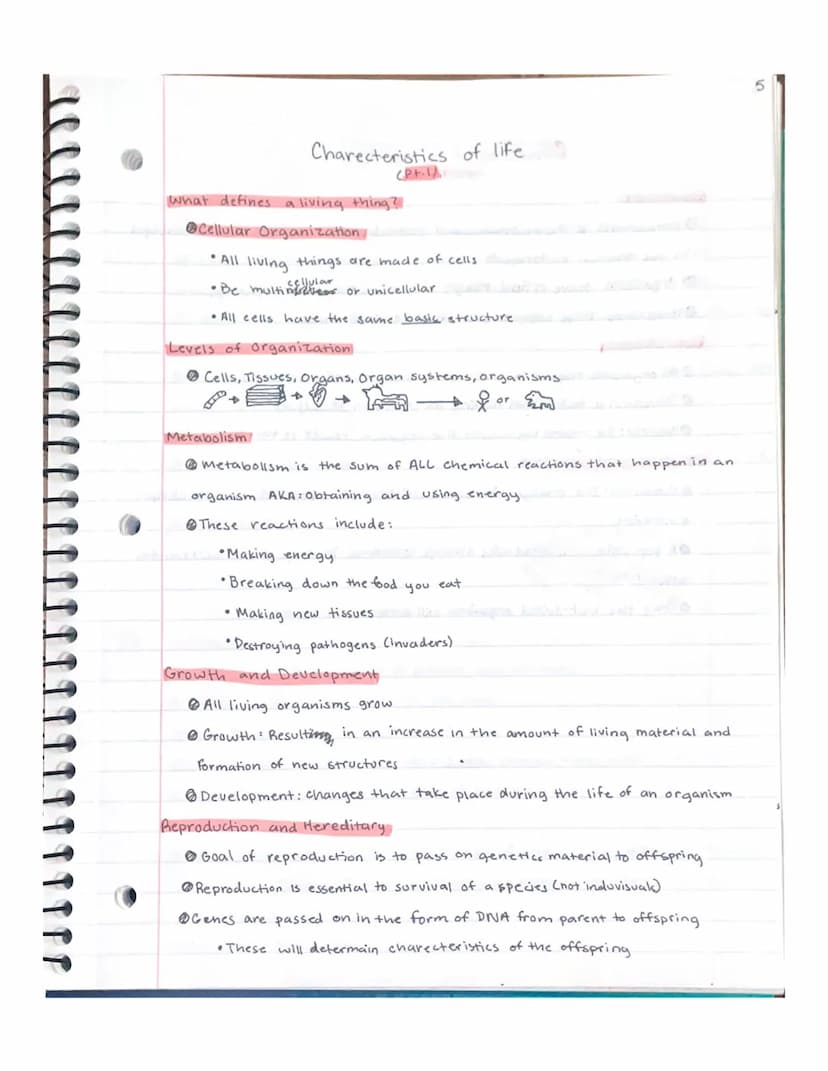 5
Charecteristics of life
(Pt.1)
What defines a living thing?
Cellular Organization
• All living things are made of cells
• Be multicellular or unicellular
• All cells have the same basic structure
Levels of Organization
Cells, Tissues, Organs, Organ systems, organisms
or
Metabolism
Metabolism is the sum of ALL chemical reactions that happen in an
organism AKA: Obtaining and using energy
These reactions include:
• Making energy
• Breaking down the food you eat
• Making new tissues
• Destroying pathogens (invaders)
Growth and Development
All living organisms grow
Growth: Resulting in an increase in the amount of living material and
formation of new structures
Development: changes that take place during the life of an organism
Reproduction and Hereditary
Goal of reproduction is to pass on genetics material to offspring
Reproduction is essential to survival of a species (not induvisuals)
Genes are passed on in the form of DNA from parent to offspring
• These will determain charecteristics of the offspring